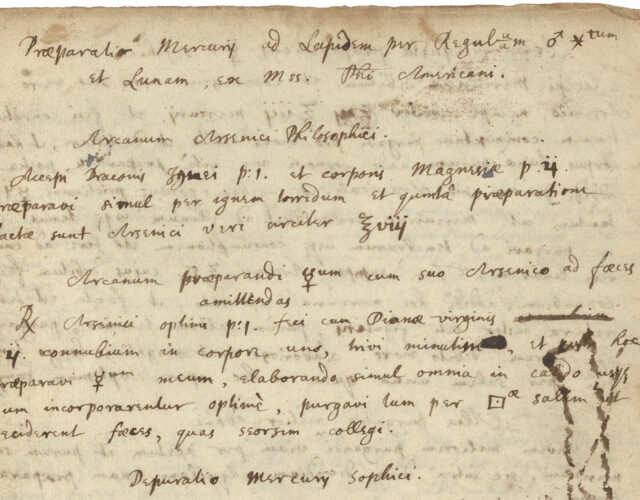 Præparatio Mercurij ad Lapidem per Regulum ♂
et Lunam, ex Mss. Phi Americani.
Arcanum Arsenici Philosophici.
Accepi Draconis Ignei p: 1. et corporis Magnesiæ p. ij
præparavi simul per ignem torridum et quintâ præparatione
factæ sunt Arsenici veri circiter ℥viij
Arcanum præparandi ☿um cum suo Arsenico ad fæces
amittendas
℞ Arsenici optimi p: 1. feci cum Dianæ virginis
ij. connubium in corpore uno, trivi minutim, et cum hoc
præparavi ☿um meum, elaborando simul omnia in
um incorporarentur optimè, purgavi tum per □æ salem ut
deciderent fæces, quas seorsim collegi.
Depuratio Mercurij Sophici.